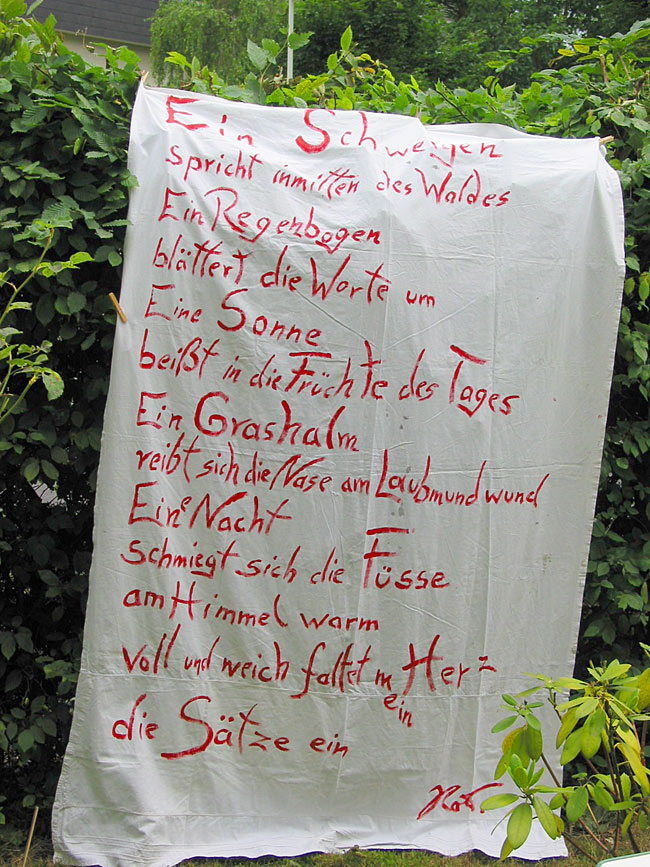 Ein Schweigen
spricht inmitten des Waldes
Ein Regenbogen
blättert die Worte um
Eine Sonne
beißt in die Früchte des Tages
Ein Grashalm
reibt sich die Nase am Laubmund wund
Eine Nacht
schmiegt sich die Füsse
am Himmel warm
voll und weich faltet mein Herz
die Sätze ein